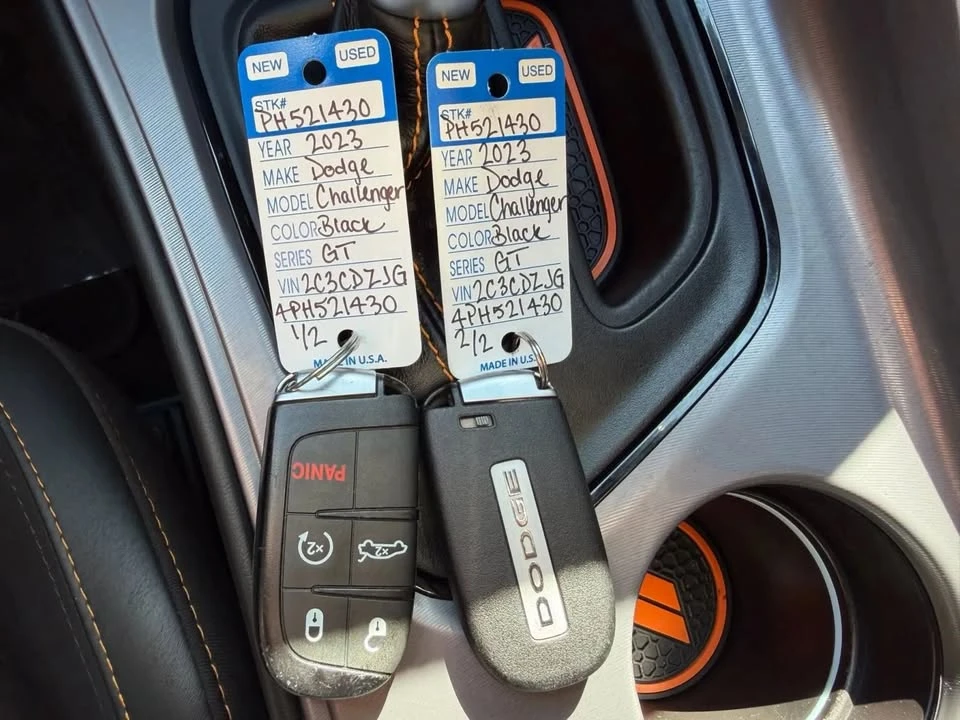 NEW USED
STK#
PH521430
YEAR 2023
MAKE Dodge
MODEL Challenger
COLOR Black
SERIES GT
VIN 2C3CDZJG
4PH521430
1/2
MADE IN U.S.A.
NEW USED
STK#
PH521430
YEAR 2023
MAKE Dodge
MODEL Challenger
COLOR Black
SERIES GT
VIN 2C3CDZJG
4PH521430
2/2
MADE IN U.S.A.
PANIC
2x 2x
DODGE